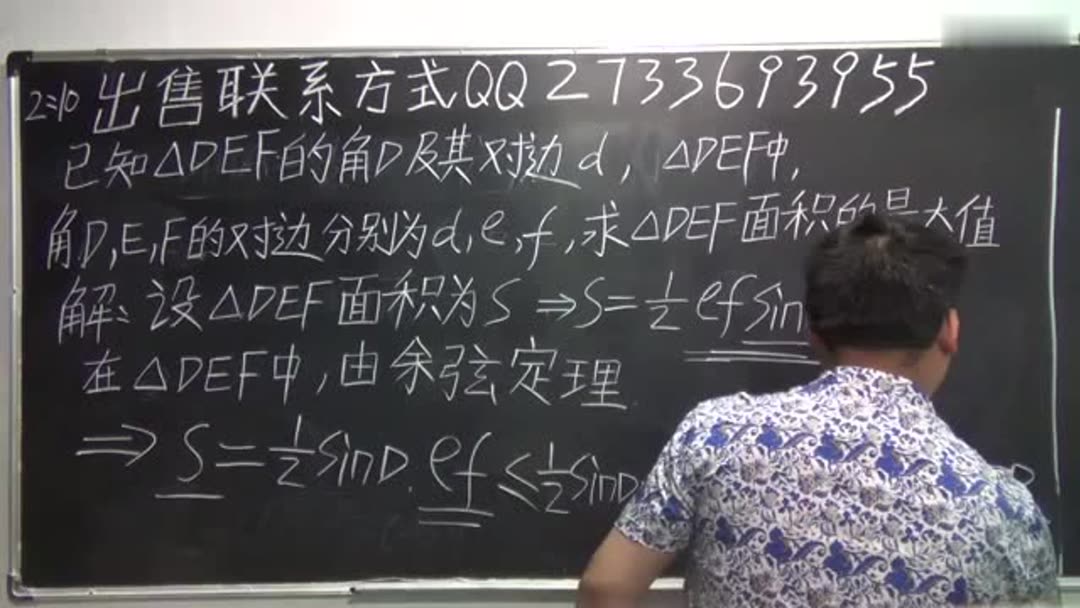 2:10 出售联系方式QQ2733693955
已知△DEF的角D及其对边d,△DEF中,
角D,E,F的对边分别为d,e,f,求△DEF面积的最大值
解:设△DEF面积为S⇒S=½efsin
在△DEF中,由余弦定理
⇒S=½sinD·ef≤½sinD